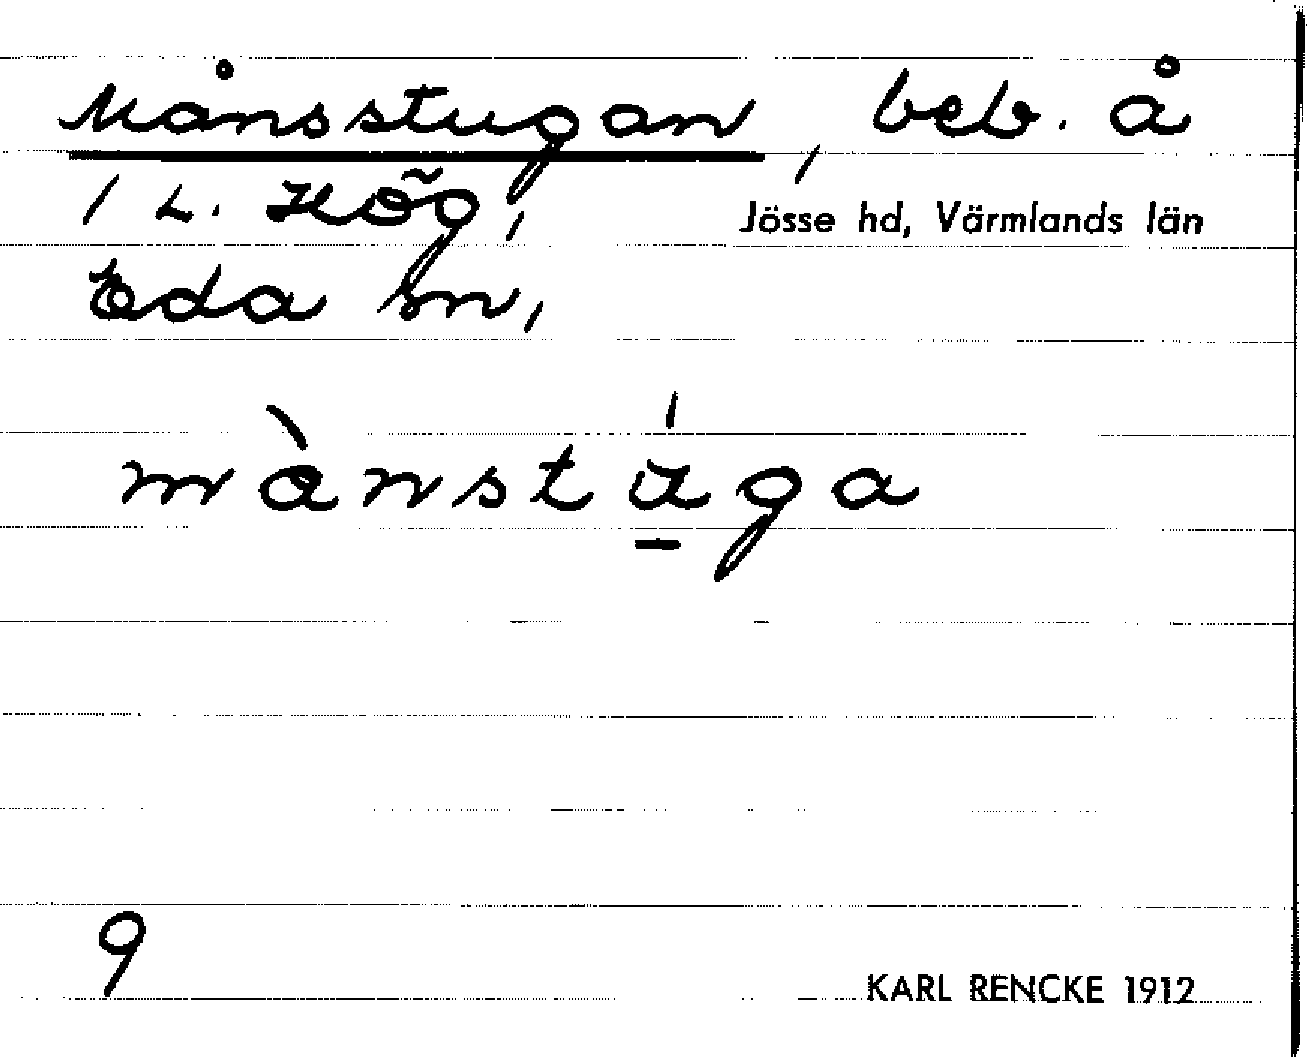 Månsstugan, beb. å
1 L. Hög,
Jösse hd, Värmlands län
Eda sn,
mànstúga
9
KARL RENCKE 1912